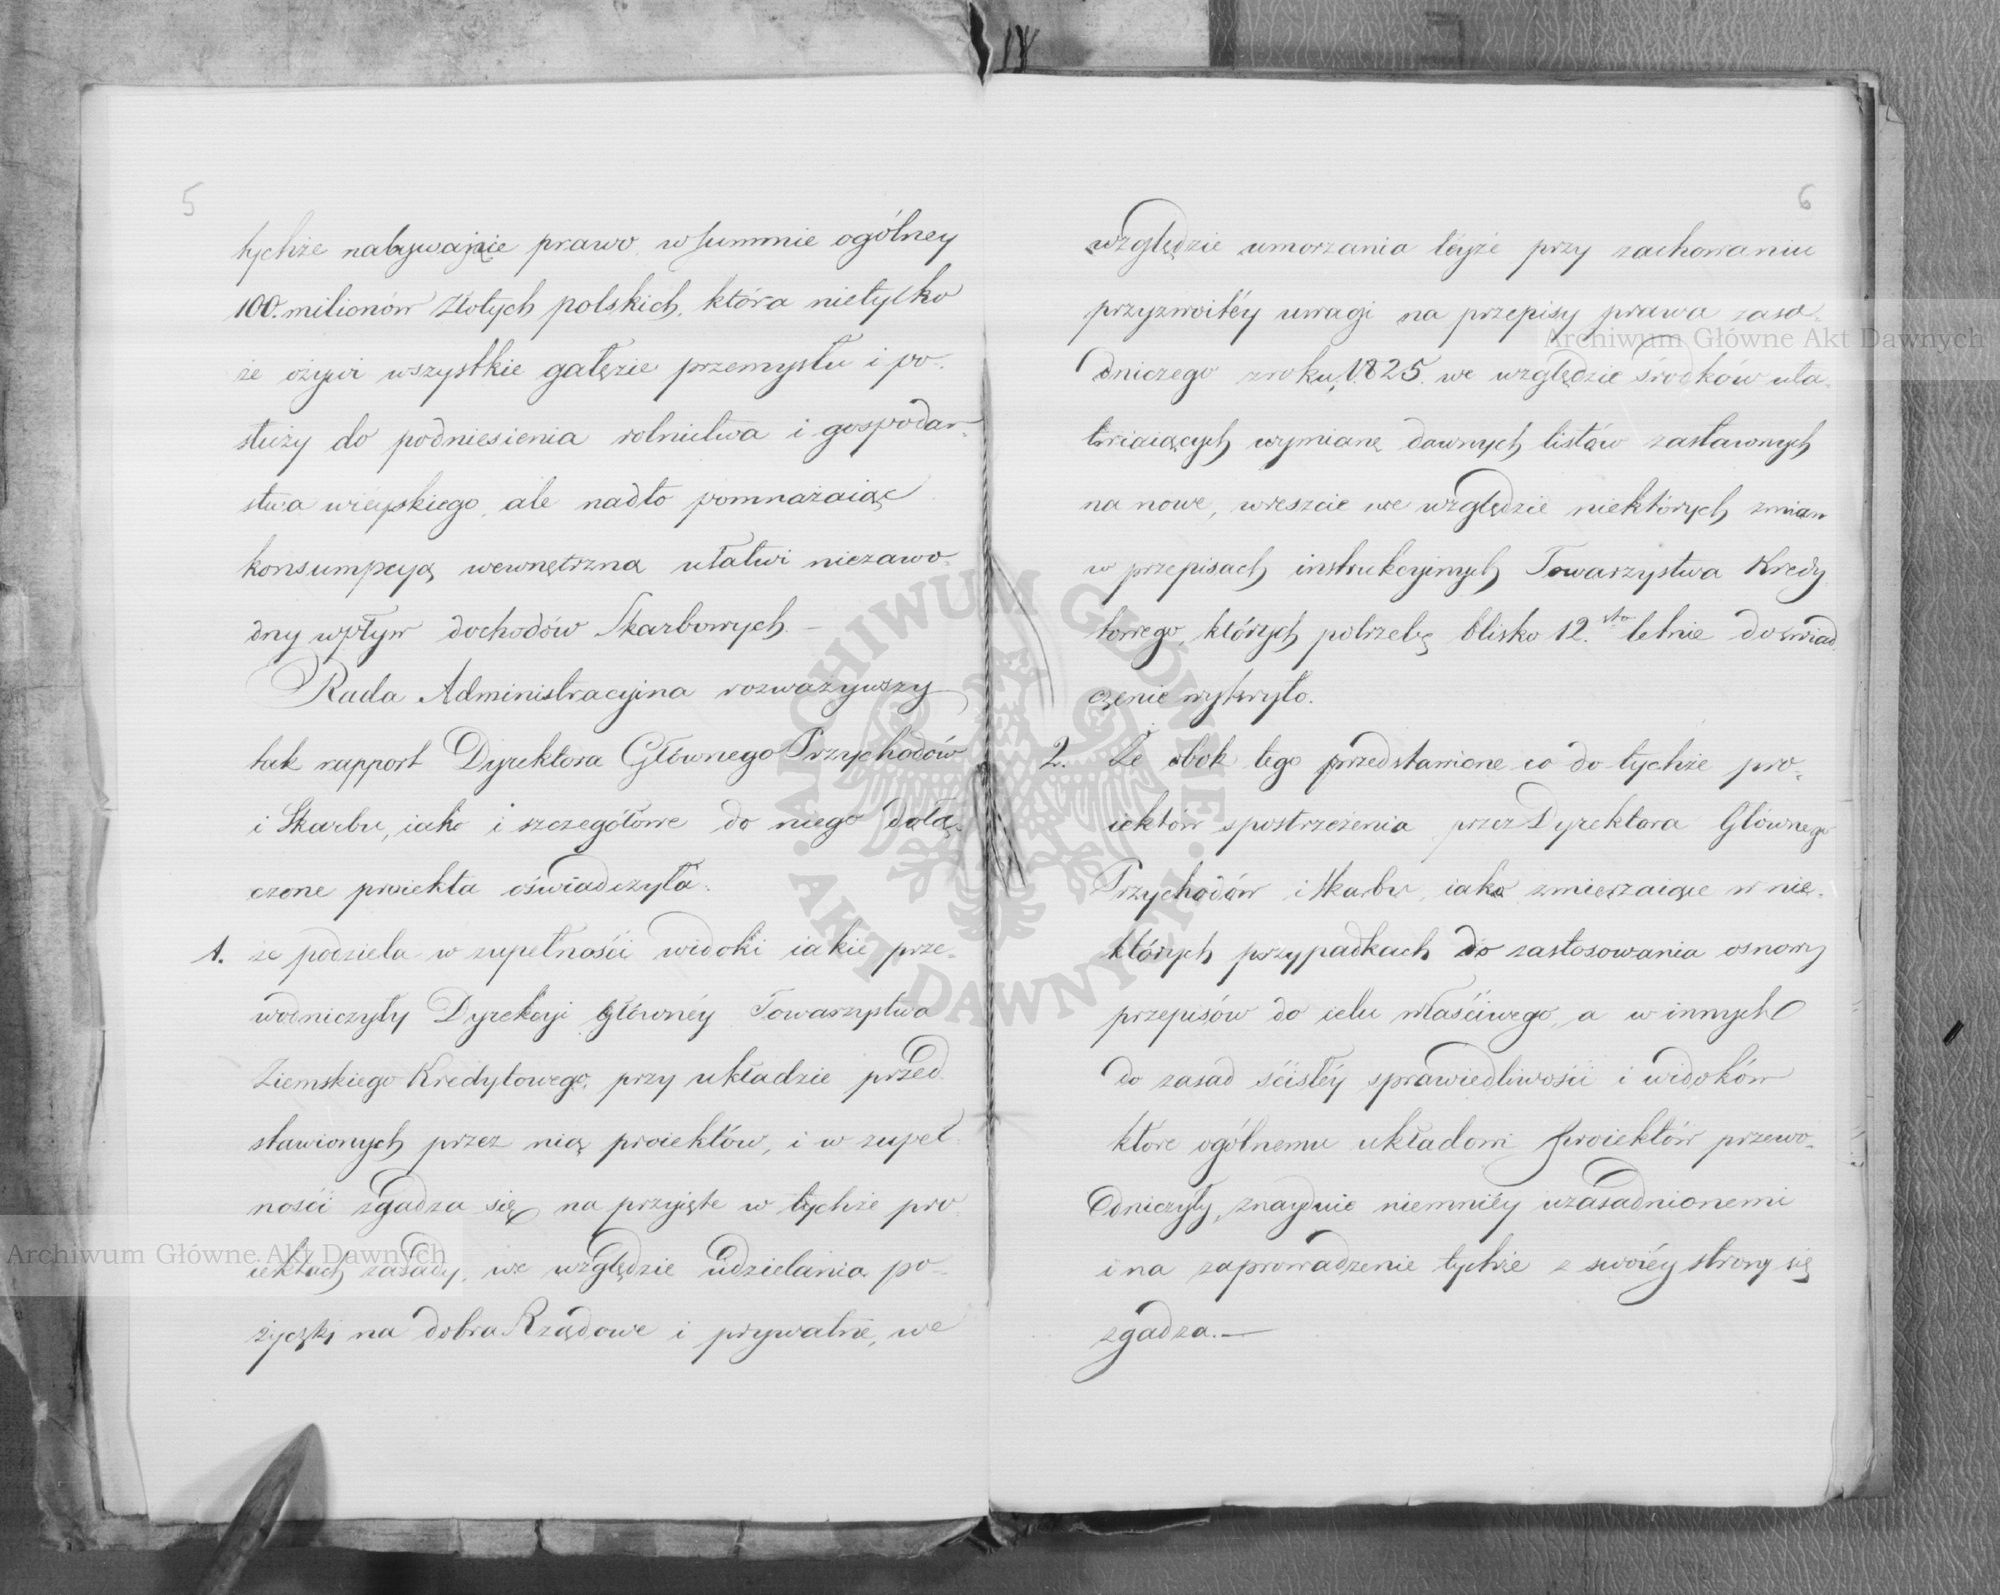 5
tychże nabywaiące prawo w summie ogólney
100. milionów Złotych polskich, która nietylko
że ożywi wszystkie gałęzie przemysłu i po-
służy do podniesienia rolnictwa i gospodar-
stwa wieyskiego, ale nadto pomnażaiąc
konsumpcyą wewnętrzną ułatwi niezawo-
dny wpływ dochodów Skarbowych. –
Rada Administracyina rozważywszy
tak rapport Dyrektora Głównego Przychodów
i Skarbu, iako i szczegółowe do niego dołą-
czone proiekta oświadczyła:
1. że podziela w zupełności widoki iakie prze-
wodniczyły Dyrekcyi Głównéy Towarzystwa
Ziemskiego Kredytowego, przy układzie przed
stawionych przez nią proiektów, i w zupeł-
ności zgadza się na przyięte w tychże pro
iektach zasady, we względzie udzielania po-
życzki na dobra Rządowe i prywatne, we
6
względzie umorzania téyże przy zachowaniu
przyzwoitéy uwagi na przepisy prawa zasa-
dniczego z roku 1825. we względzie środków uła-
twiaiących wymianę dawnych listów zastawnych
na nowe, wreszcie we względzie niektórych zmian
w przepisach instrukcyinych Towarzystwa Kredy
towego, których potrzebę blisko 12.sto letnie doświad
czenie wykryło.
2. Że obok tego przedstawione co do tychże pro-
iektów spostrzeżenia przez Dyrektora Głównego
Przychodów i Skarbu, iako zmierzaiące w nie-
których przypadkach do zastosowania osnowy
przepisów do celu właściwego, a w innych
do zasad ścisłéy sprawiedliwości i widoków
które ogólnemu układowi proiektów przewo-
dniczyły, znayduie niemniéy uzasadnionemi
i na zaprowadzenie tychże z swoiéy strony się
zgadza. —
Archiwum Główne Akt Dawnych
Archiwum Główne Akt Dawnych
ARCHIWUM GŁÓWNE · AKT DAWNYCH ·